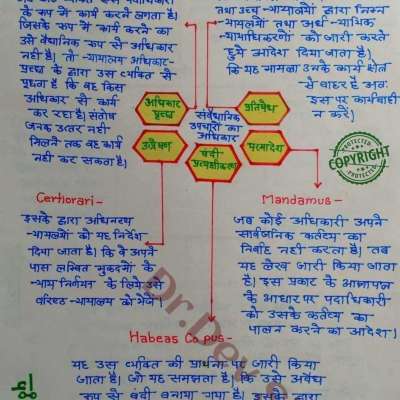 के रूप में कार्य करने लगता है।
जिसके रूप में कार्य करने का
उसे वैधानिक रूप से अधिकार
नहीं है। तो न्यायालय अधिकार-
पृच्छा के द्वारा उस व्यक्ति से
पूछता है कि वह किस
अधिकार से कार्य
कर रहा है। संतोष
जनक उत्तर नहीं
मिलने तक वह कार्य
नहीं कर सकता है।
तथा उच्च न्यायालयों द्वारा निम्न
न्यायालयों तथा अर्ध न्यायिक
न्यायाधिकरणों को जारी करते
हुये आदेश दिया जाता है।
कि यह मामला उनके कार्य क्षेत्र
से बाहर है अतः
इस पर कार्यवाही
न करें।
अधिकार
पृच्छा
प्रतिषेध
संवैधानिक
उपचारों का
अधिकार
उत्प्रेषण
परमादेश
बंदी
प्रत्यक्षीकरण
PROTECTED
COPYRIGHT
PROTECTED
Certiorari -
इसके द्वारा अधिनस्थ
न्यायलयों को यह निर्देश
दिया जाता है। कि वे अपने
पास लम्बित मुकदमों के
न्याय निर्णयन के लिये उसे
वरिष्ठ न्यायालय को भेजे
Mandamus -
जब कोई अधिकारी अपने
सार्वजनिक कर्तव्य का
निर्वाह नहीं करता है। तब
यह लेख जारी किया जाता
है। इस प्रकार के आज्ञापत्र
के आधार पर पदाधिकारी
को उसके कर्तव्य का
पालन करने का आदेश।
Habeas Co pus -
यह उस व्यक्ति की प्रार्थना पर जारी किया
जाता है। जो यह समझता है। कि उसे अवैध
रूप से बंदी बनाया गया है। इसके द्वारा